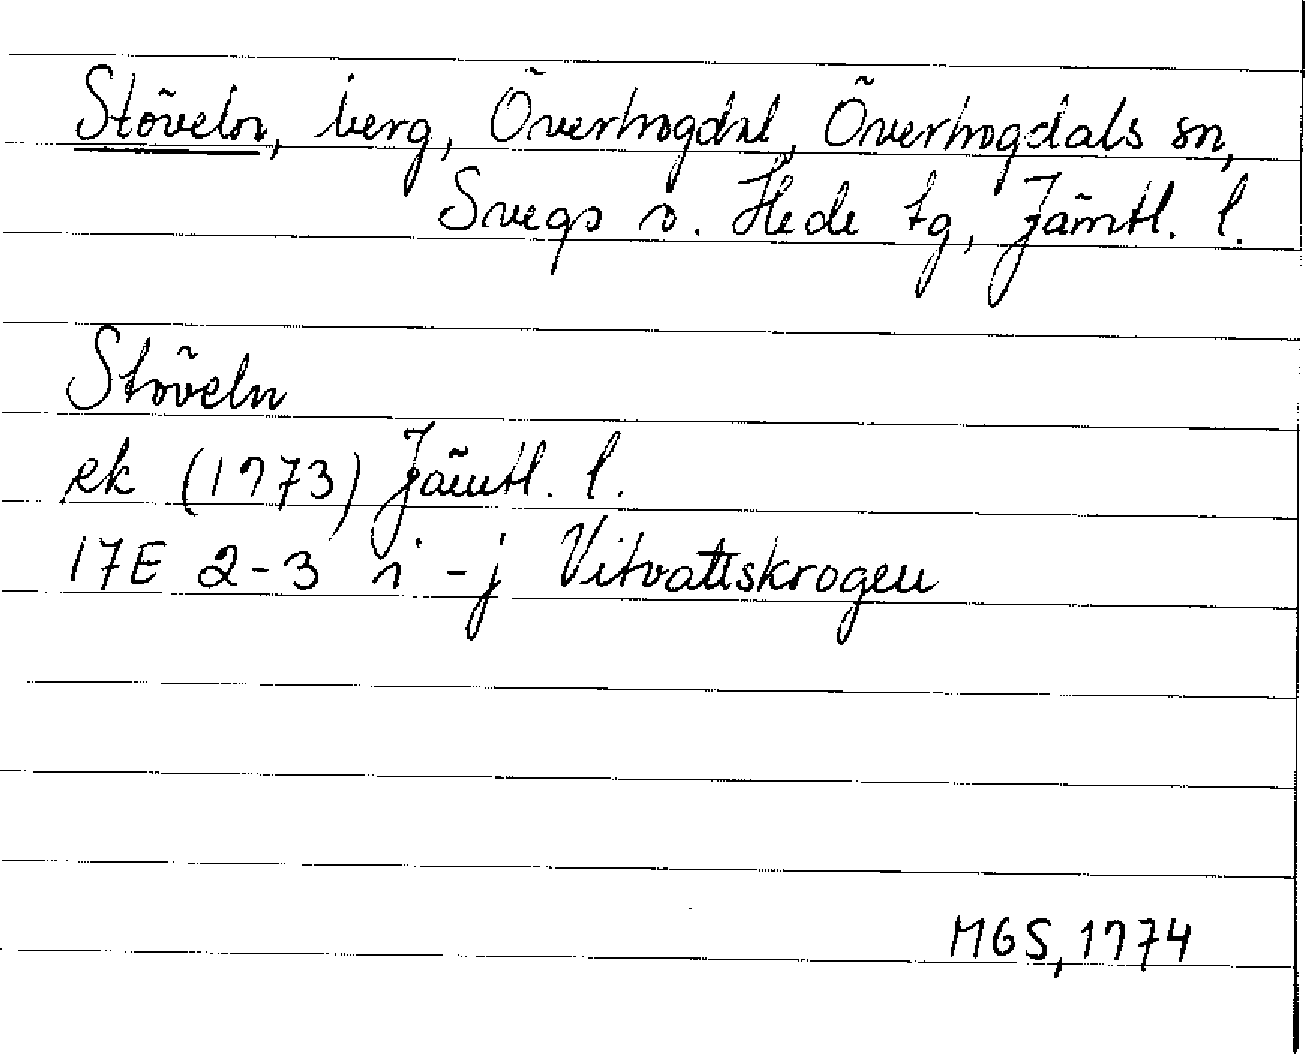 Stöveln, berg, Överhogdal, Överhogdals sn,
Svegs o. Hede tg, Jämtl. l.
Stöveln
ek (1973) Jämtl. l.
17E 2-3 i-j Vitvattskrogen
MGS, 1974